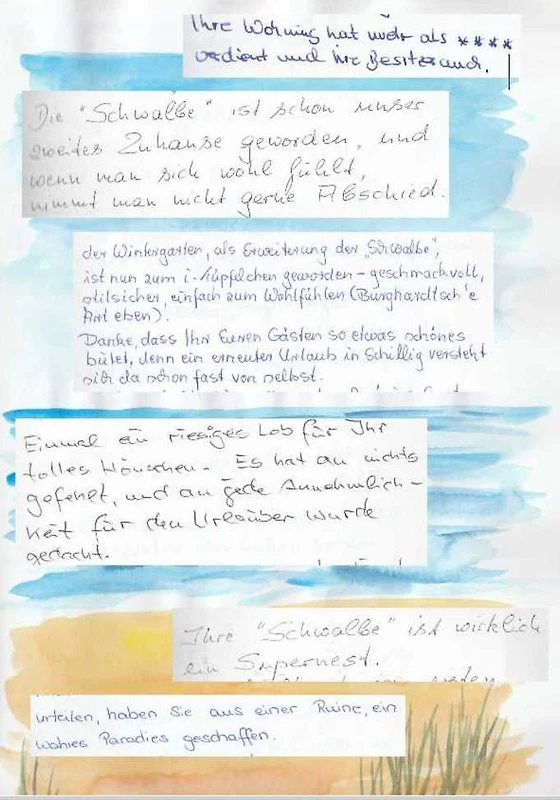 Ihre Wohnung hat mehr als ****
verdient und ihre Besitzer auch.
Die "Schwalbe" ist schon unser
zweites Zuhause geworden, und
wenn man sich wohl fühlt,
nimmt man nicht gerne Abschied.
der Wintergarten, als Erweiterung der "Schwalbe",
ist nun zum i-Tüpfelchen geworden - geschmackvoll,
stilsicher, einfach zum Wohlfühlen (Burghardtsch'e
Art eben).
Danke, dass Ihr Euren Gästen so etwas schönes
bietet, denn ein erneuter Urlaub in Schillig versteht
sich da schon fast von selbst.
Einmal ein riesiges Lob für Ihr
tolles Häuschen. Es hat an nichts
gefehlt, und an jede Annehmlich-
keit für den Urlauber wurde
gedacht.
Ihre "Schwalbe" ist wirklich
ein Supernest.
urteilen, haben Sie aus einer Ruine, ein
wahres Paradies geschaffen.